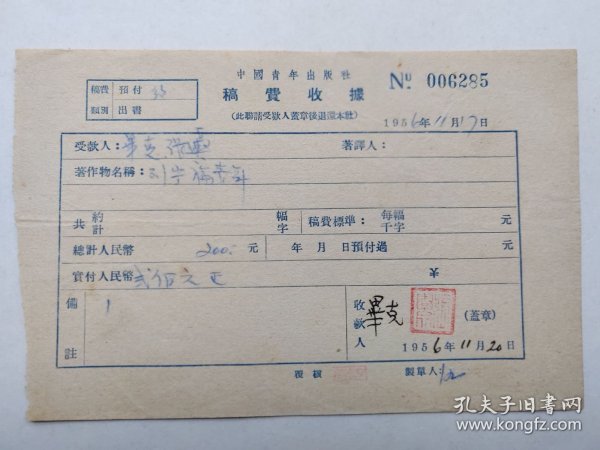 中國青年出版社
稿費收據
(此聯請受款人蓋章後退還本社)
Nº 006285
稿費 預付
類別 出書
1956年11月17日
受款人：畢克 著譯人：
著作物名稱：
共約計 幅字 稿費標準：每幅千字 元
總計人民幣 200.- 元 年 月 日預付過 元
實付人民幣 弍佰元正 ¥
備註
收款人 畢克 (蓋章)
1956年11月20日
覆核 製單人
孔夫子旧书网
www.kongfz.com